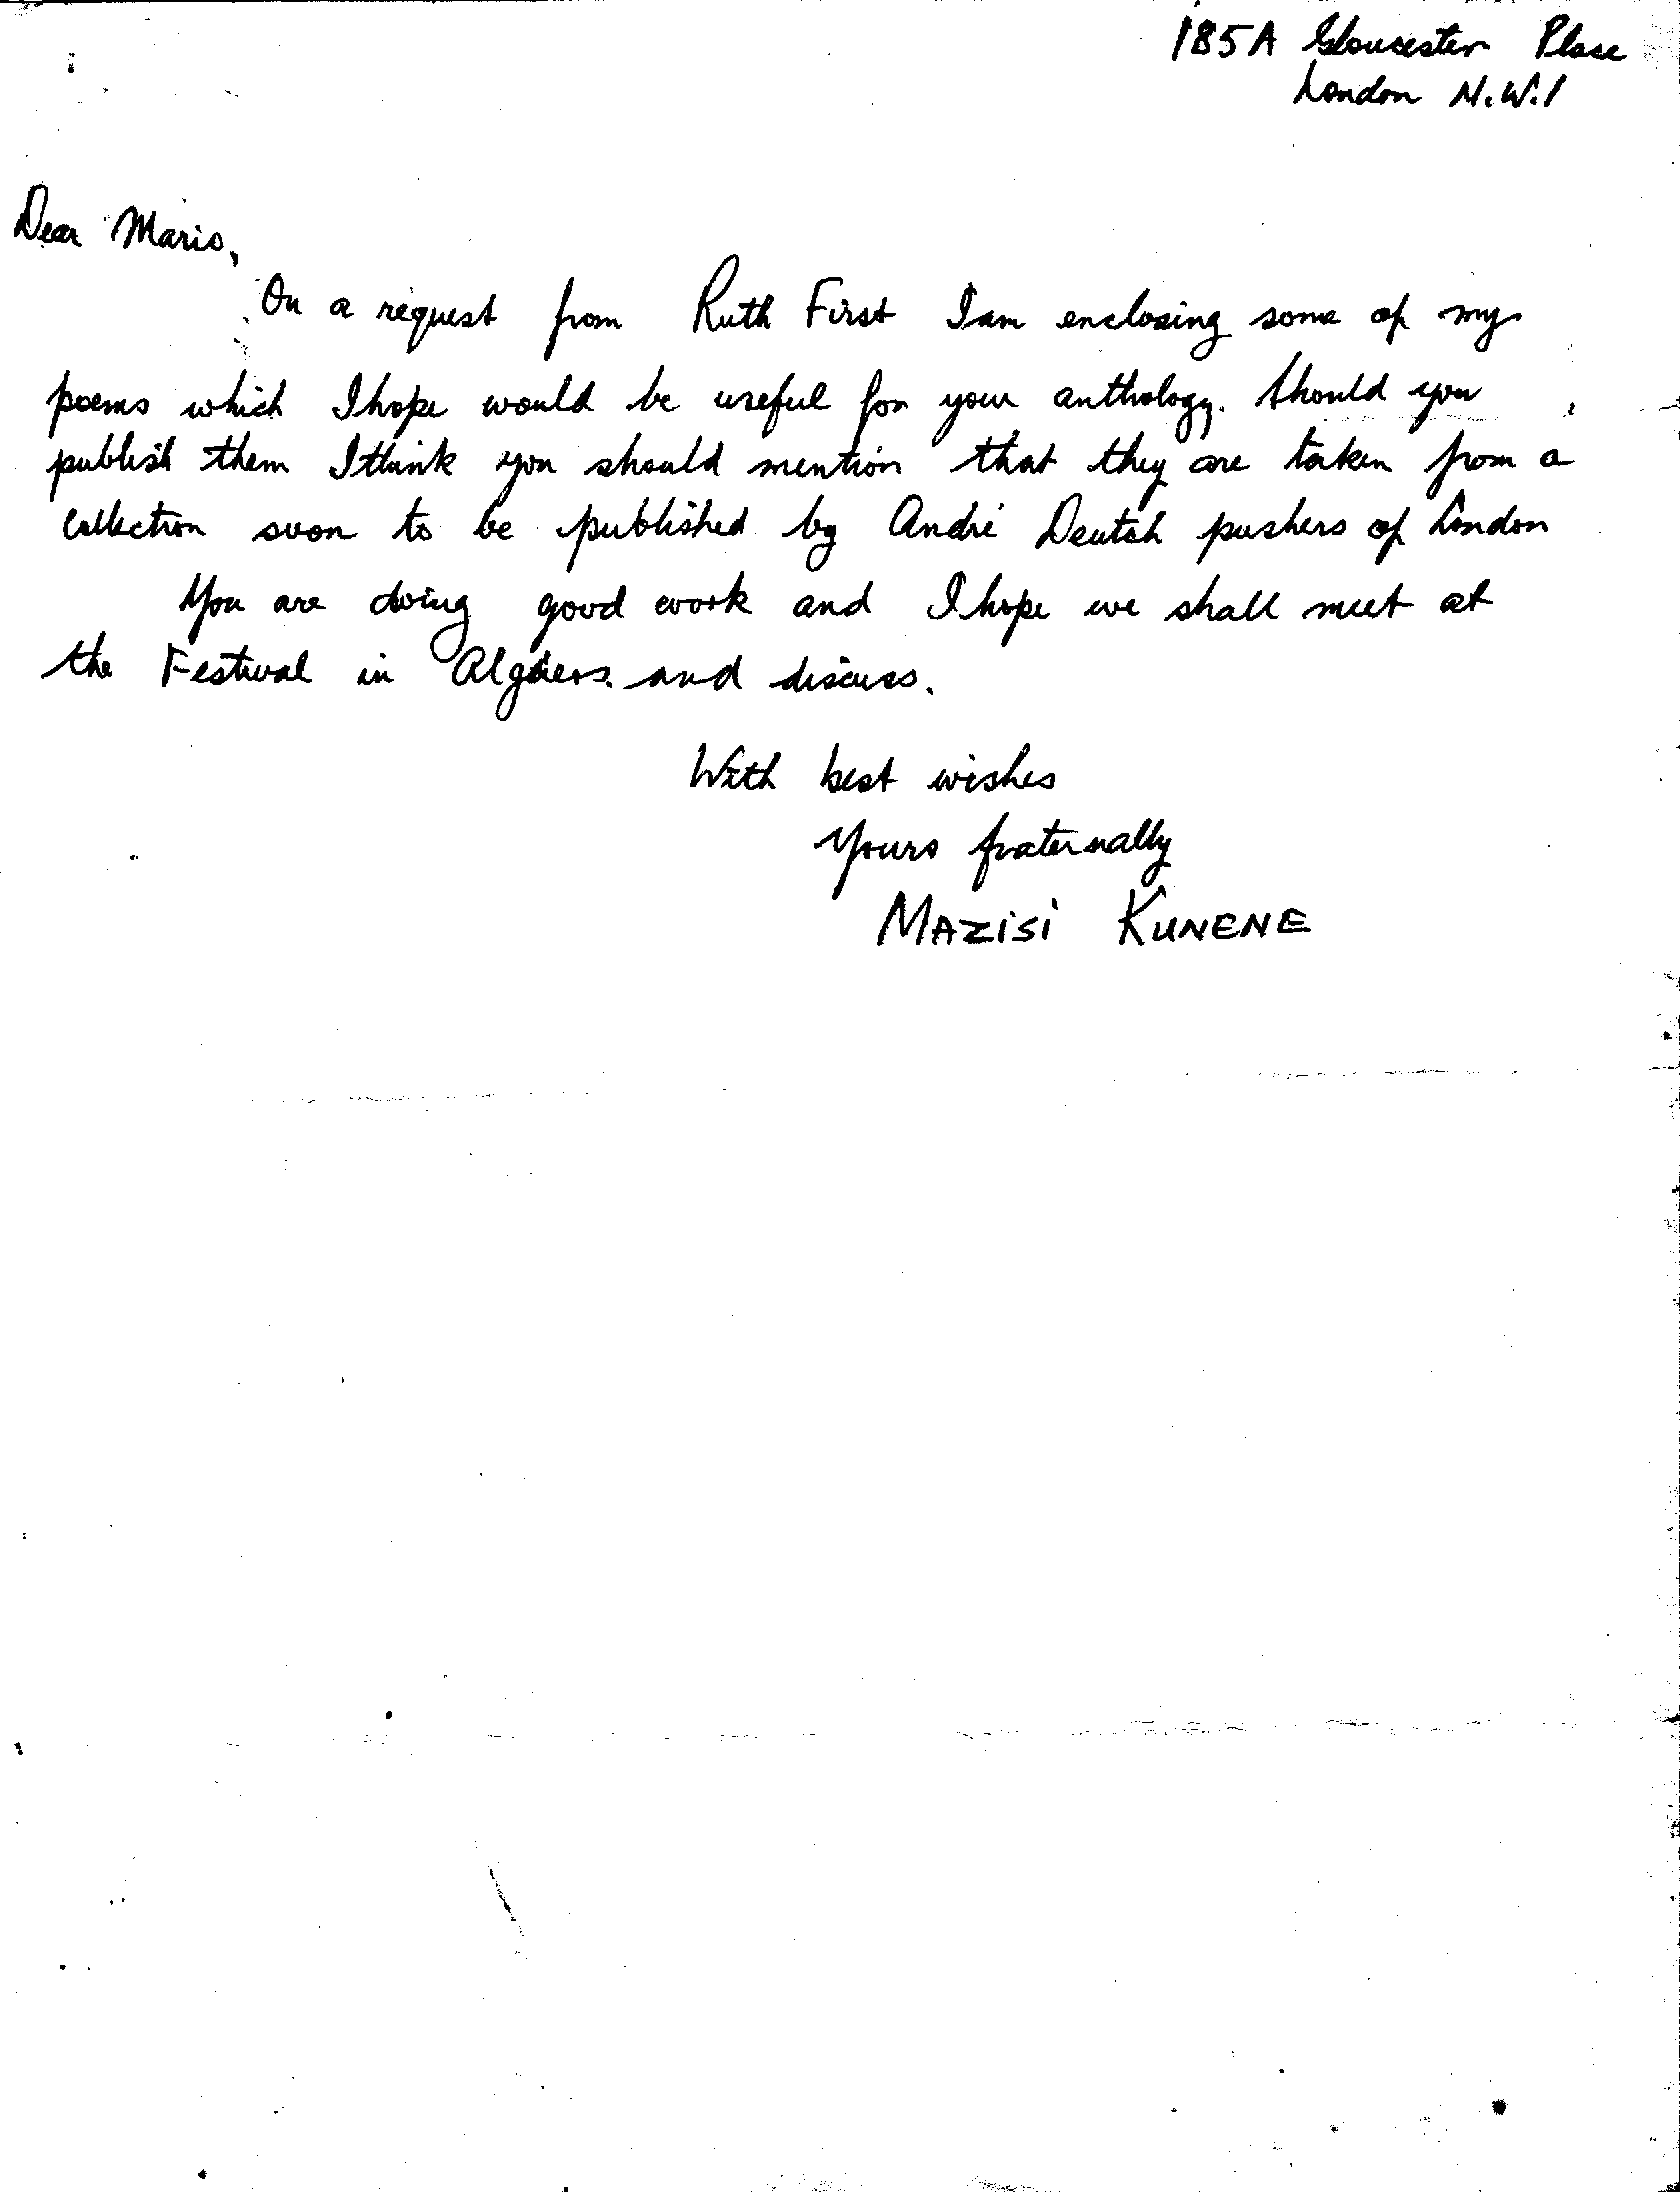 185A Gloucester Place
London N.W.1
Dear Mario,
On a request from Ruth First I am enclosing some of my
poems which I hope would be useful for your anthology. Should you
publish them I think you should mention that they are taken from a
collection soon to be published by André Deutsh pushers of London
You are doing good work and I hope we shall meet at
the Festival in Algiers and discuss.
With best wishes
Yours fraternally
MAZISI KUNENE